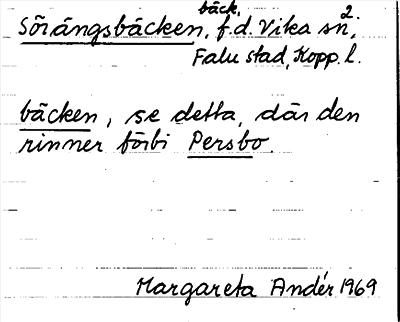 bäck,
Sörängsbäcken, f.d. Vika sn,²
Falu stad, Kopp. l.
bäcken, se detta, där den
rinner förbi Persbo.
Margareta Andér 1969